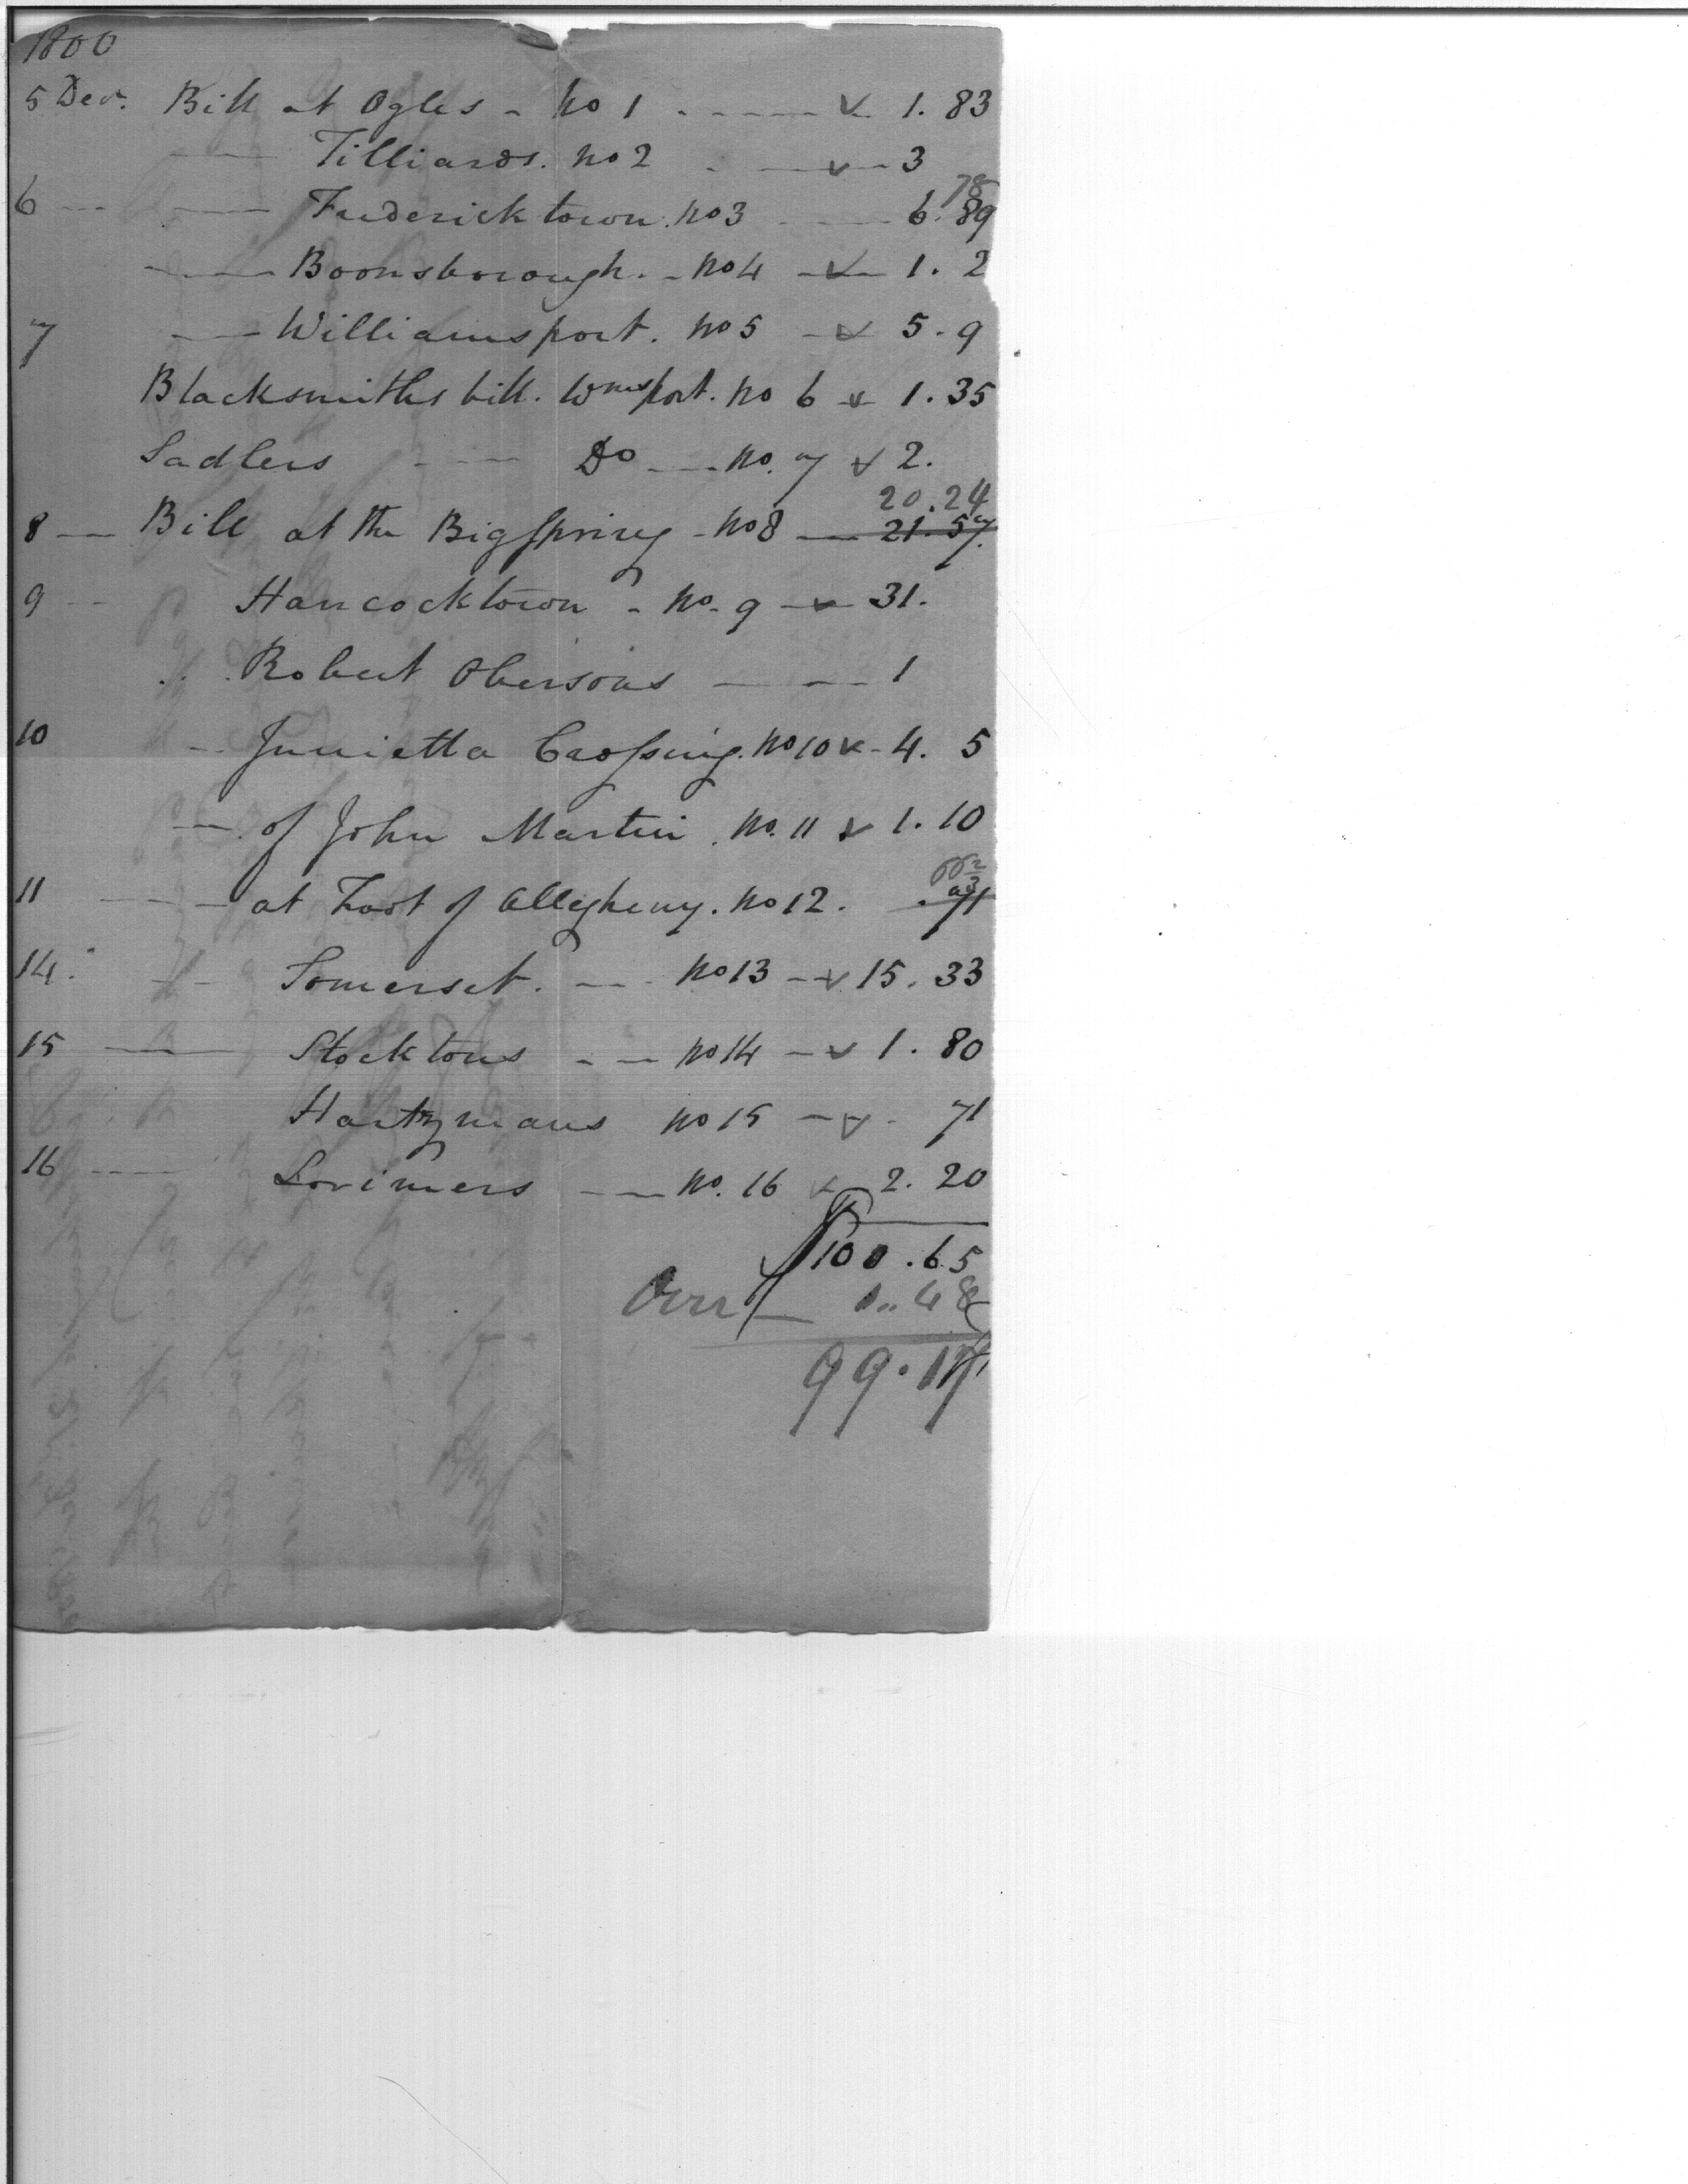 1800
5 Decr. Bill at Ogles - No 1 - - - - 1. 83
Tilliards. No 2 - 3
78
6 - - Fredericktown. No 3 - 6. 89
Boonsborough. - No 4 - 1. 2
7 - Williamsport. No 5 - 5. 9
Blacksmiths bill. Wmsport. No 6 - 1. 35
Sadlers - - - Do - No. 7 2.
20.24
8 - Bill at the Bigspring - No 8 - 21.57
9 - - Hancocktown - No. 9 - 31.
Robert Obersons - - - 1
10 - Junietta Crossing. No 10 - 4. 5
- of John Martin. No. 11 1. 10
66 2/3
11 - - - at Foot of Allegheny. No 12. .71
14. - - Somerset. - - No 13 - 15. 33
15 - Stocktons - - No 14 - 1. 80
Hartzmans No 15 - 71
16 - - - Lorimers - - No. 16 2. 20
100.65
1..48
99.17